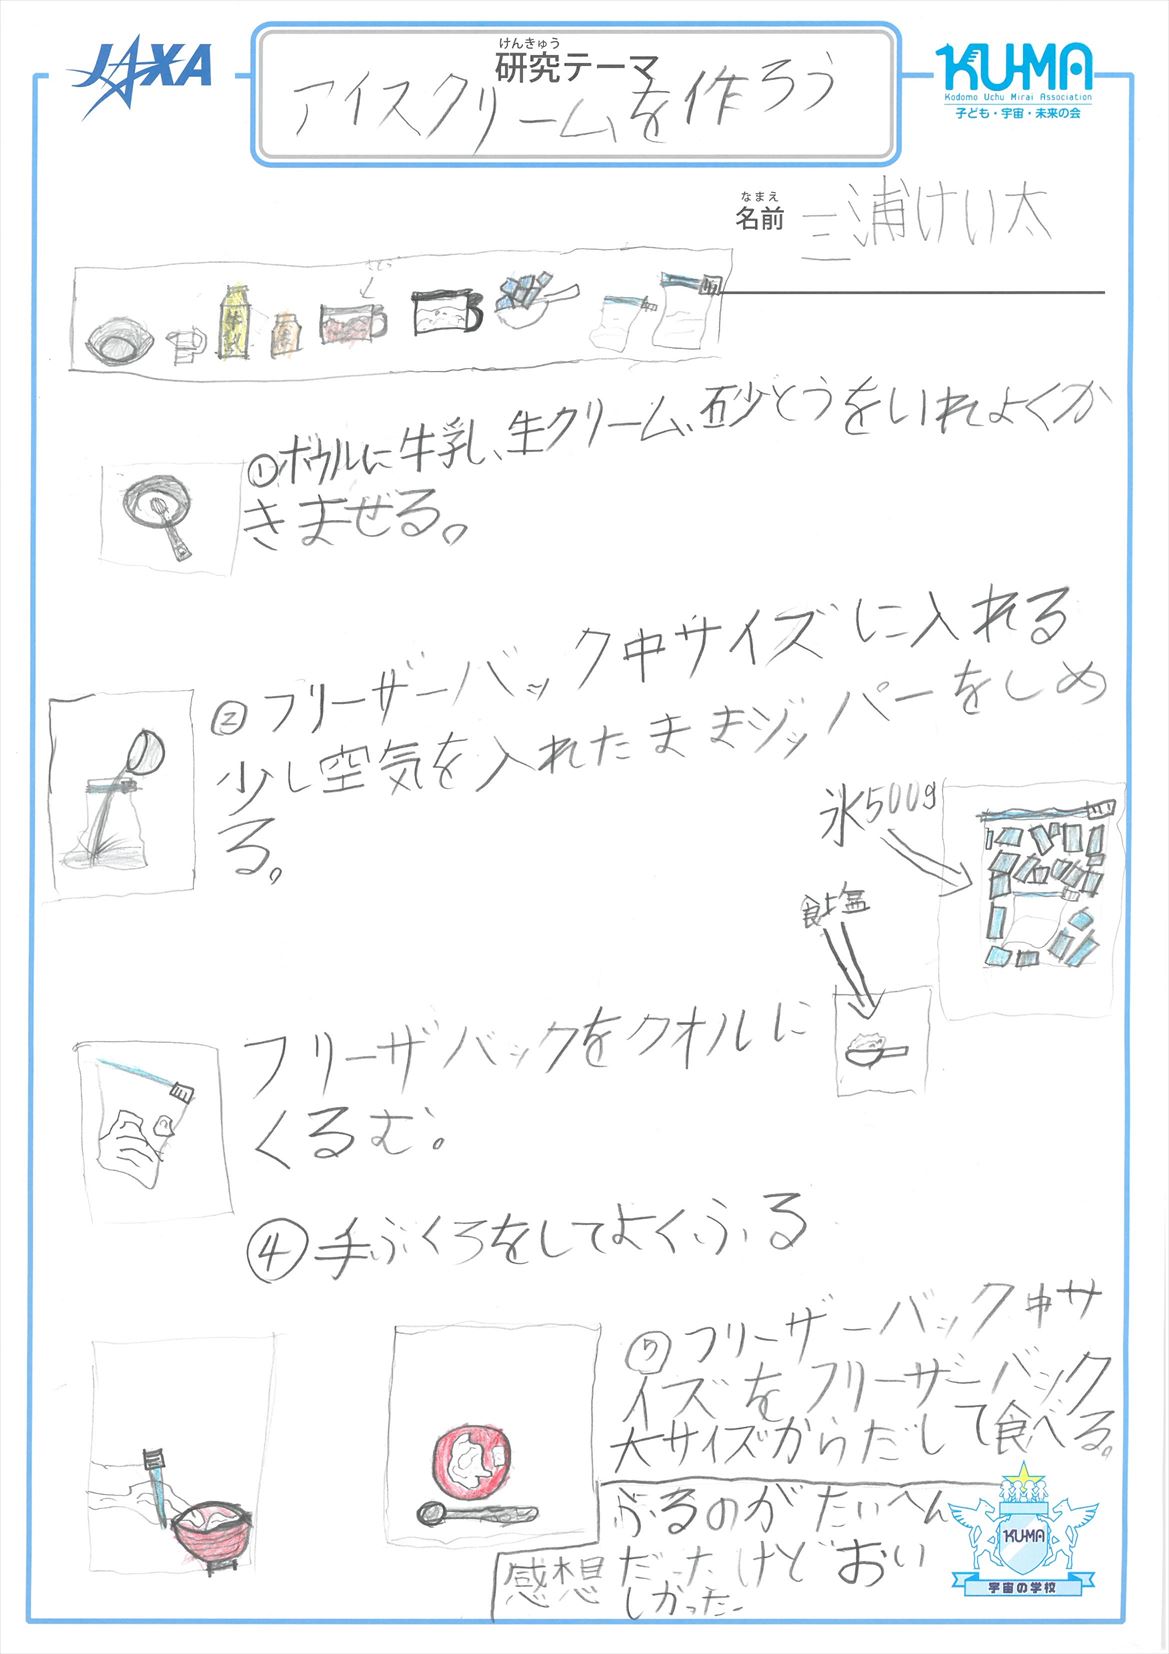 JAXA
けんきゅう
研究テーマ
アイスクリームを作ろう
KU-MA
Kodomo Uchu Mirai Association
子ども・宇宙・未来の会
なまえ
名前
三浦けい太
牛乳
①ボウルに牛乳、生クリーム、砂とうをいれよくか
きまぜる。
②フリーザーバック中サイズに入れる
少し空気を入れたままジッパーをしめ
る。
氷500g
食塩
フリーザバックをクオルに
くるむ。
④手ぶくろをしてよくふる
フリーザーバック中サ
イズをフリーザーバック
大サイズからだして食べる。
感想
ぶるのがたいへん
だったけどおい
しかった
KU-MA
宇宙の学校